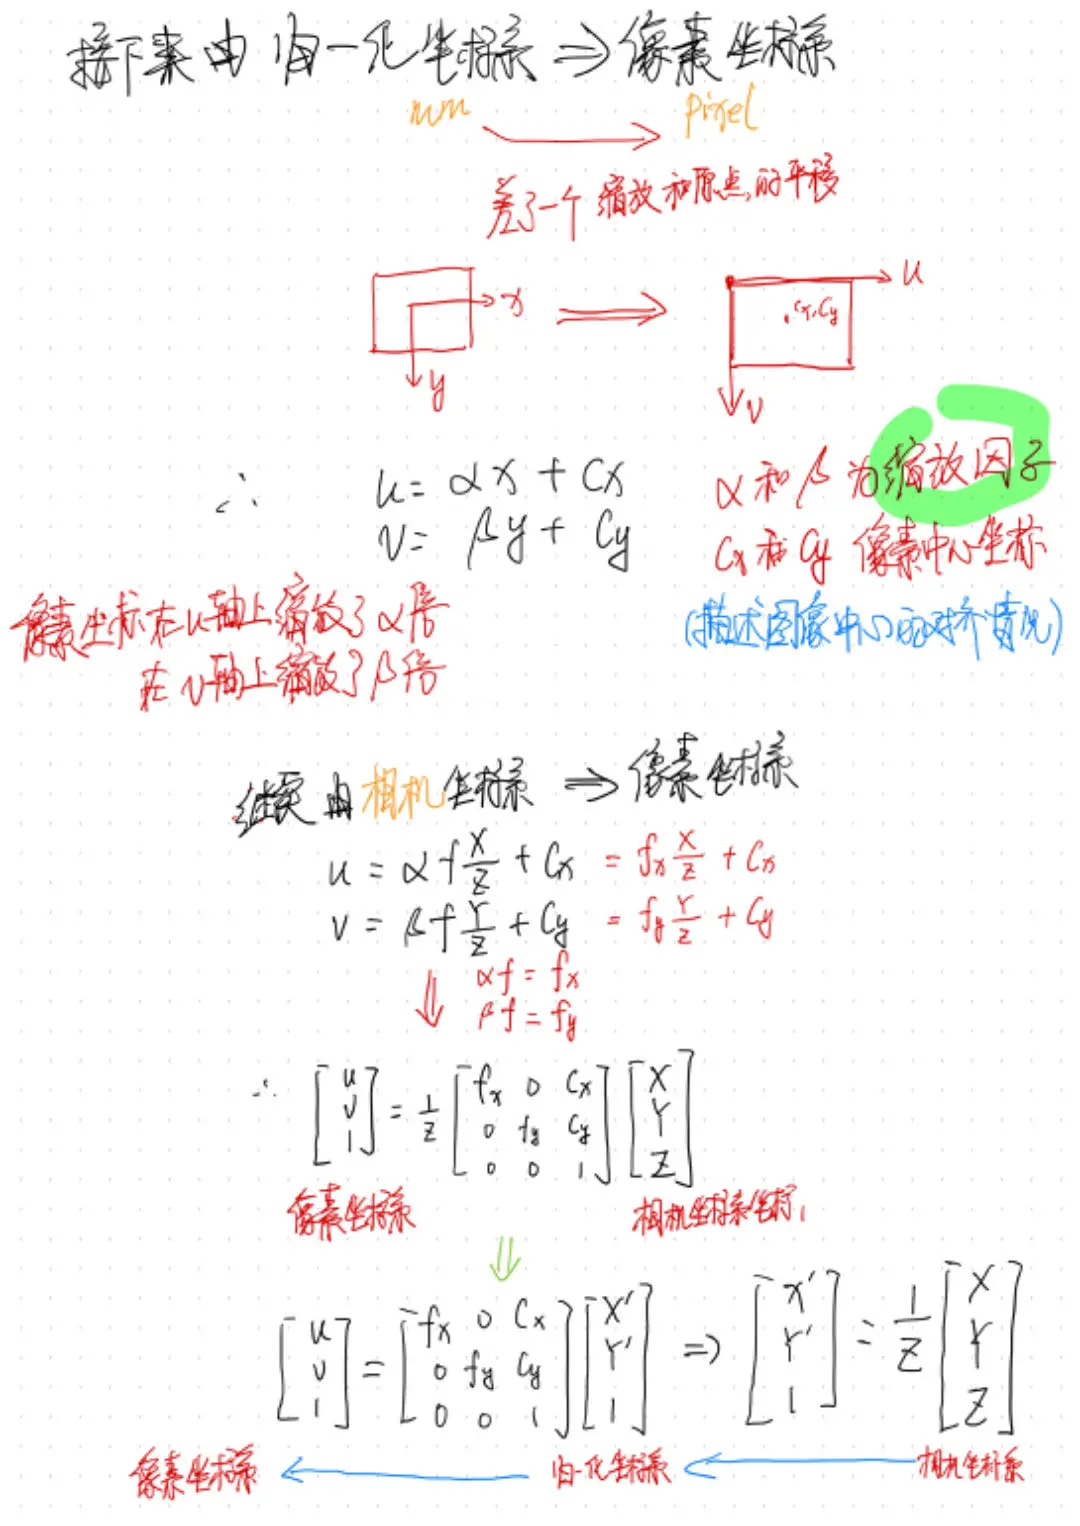 接下来由归一化坐标系 ⇒ 像素坐标系
mm → pixel
差了一个缩放和原点的平移
x ⇒ u
Cx, Cy
y
v
∴ u = αx + Cx
v = βy + Cy
α和β为缩放因子
Cx和Cy 像素中心坐标
(描述图像中心的对齐情况)
像素坐标在u轴上缩放了α倍
在v轴上缩放了β倍
继续由相机坐标系 ⇒ 像素坐标系
u = αf X/Z + Cx = fx X/Z + Cx
v = βf Y/Z + Cy = fy Y/Z + Cy
⇓ αf = fx
βf = fy
∴ [u v 1] = 1/Z [fx 0 Cx; 0 fy Cy; 0 0 1] [X Y Z]
像素坐标系 相机坐标系坐标
⇓
[u v 1] = [fx 0 Cx; 0 fy Cy; 0 0 1] [X' Y' 1] ⇒ [x' Y' 1] = 1/Z [X Y Z]
像素坐标系 ← 归一化坐标系 ← 相机坐标系